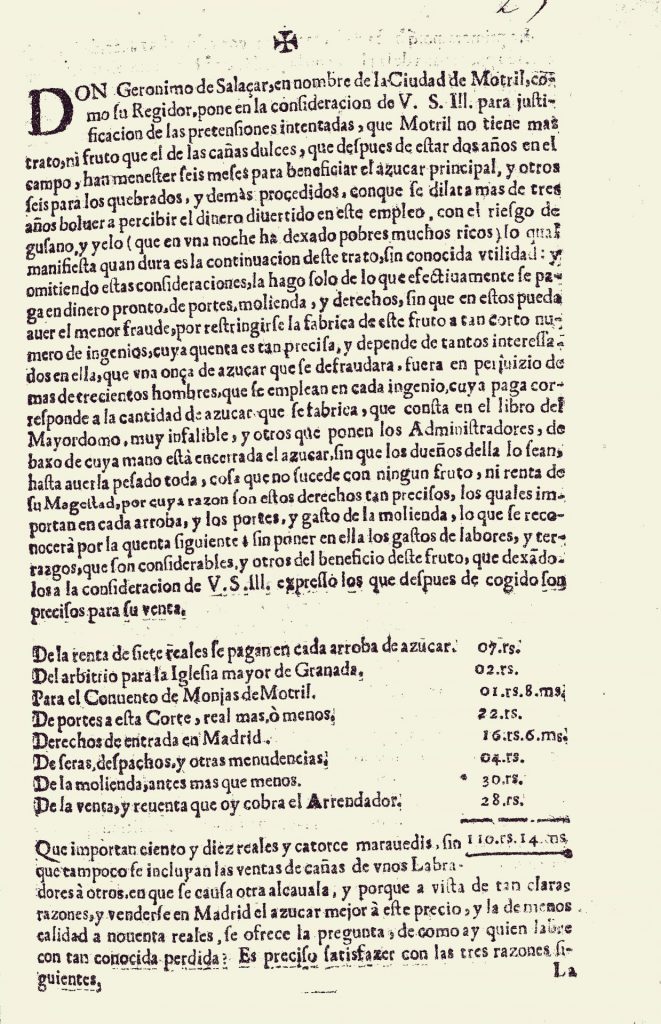 27
✠
DON Geronimo de Salaçar, en nombre de la Ciudad de Motril, co-
mo su Regidor, pone en la consideracion de V. S. Ill. para justi-
ficacion de las pretensiones intentadas, que Motril no tiene mas
trato, ni fruto que el de las cañas dulces, que despues de estar dos años en el
campo, han menester seis meses para beneficiar el azucar principal, y otros
seis para los quebrados, y demàs procedidos, conque se dilata mas de tres
años boluer a percibir el dinero diuertido en este empleo, con el riesgo de
gusano, y yelo (que en vna noche ha dexado pobres muchos ricos) lo qual
manifiesta quan dura es la continuacion deste trato, sin conocida vtilidad: y
omitiendo estas consideraciones, la hago solo de lo que efectiuamente se pa-
ga en dinero pronto, de portes, molienda, y derechos, sin que en estos pueda
auer el menor fraude, por restringirse la fabrica de este fruto a tan corto nu-
mero de ingenios, cuya quenta es tan precisa, y depende de tantos interessa-
dos en ella, que vna onça de azucar que se defraudara, fuera en perjuizio de
mas de trecientos hombres, que se emplean en cada ingenio, cuya paga cor-
responde a la cantidad de azucar que se fabrica, que consta en el libro del
Mayordomo, muy infalible, y otros que ponen los Administradores, de-
baxo de cuya mano està encerrada el azucar, sin que los dueños della lo sean,
hasta auerla pesado toda, cosa que no sucede con ningun fruto, ni renta de
su Magestad, por cuya razon son estos derechos tan precisos, los quales im-
portan en cada arroba, y los portes, y gasto de la molienda, lo que se reco-
nocerà por la quenta siguiente: sin poner en ella los gastos de labores, y ter-
razgos, que son considerables, y otros del beneficio deste fruto, que dexādo-
los a la consideracion de V. S. Ill. expresso los que despues de cogido son
precisos para su venta.
De la renta de siete reales se pagan en cada arroba de azucar. 07.rs.
Del arbitrio para la Iglesia mayor de Granada. 02.rs.
Para el Conuento de Monjas de Motril. 01.rs.8.ms.
De portes a esta Corte, real mas, ò menos. 22.rs.
Derechos de entrada en Madrid. 16.rs.6.ms.
De seras, despachos, y otras menudencias. 04.rs.
De la molienda, antes mas que menos. 30.rs.
De la venta, y reuenta que oy cobra el Arrendador. 28.rs.
Que importan ciento y diez reales y catorce marauedis, sin 110.rs.14.ms
que tampoco se incluyan las ventas de cañas de vnos Labra-
dores à otros, en que se causa otra alcauala, y porque a vista de tan claras
razones, y venderse en Madrid el azucar mejor à este precio, y la de menos
calidad a nouenta reales, se ofrece la pregunta, de como ay quien labre
con tan conocida perdida? Es preciso satisfazer con las tres razones si-
guientes.
La